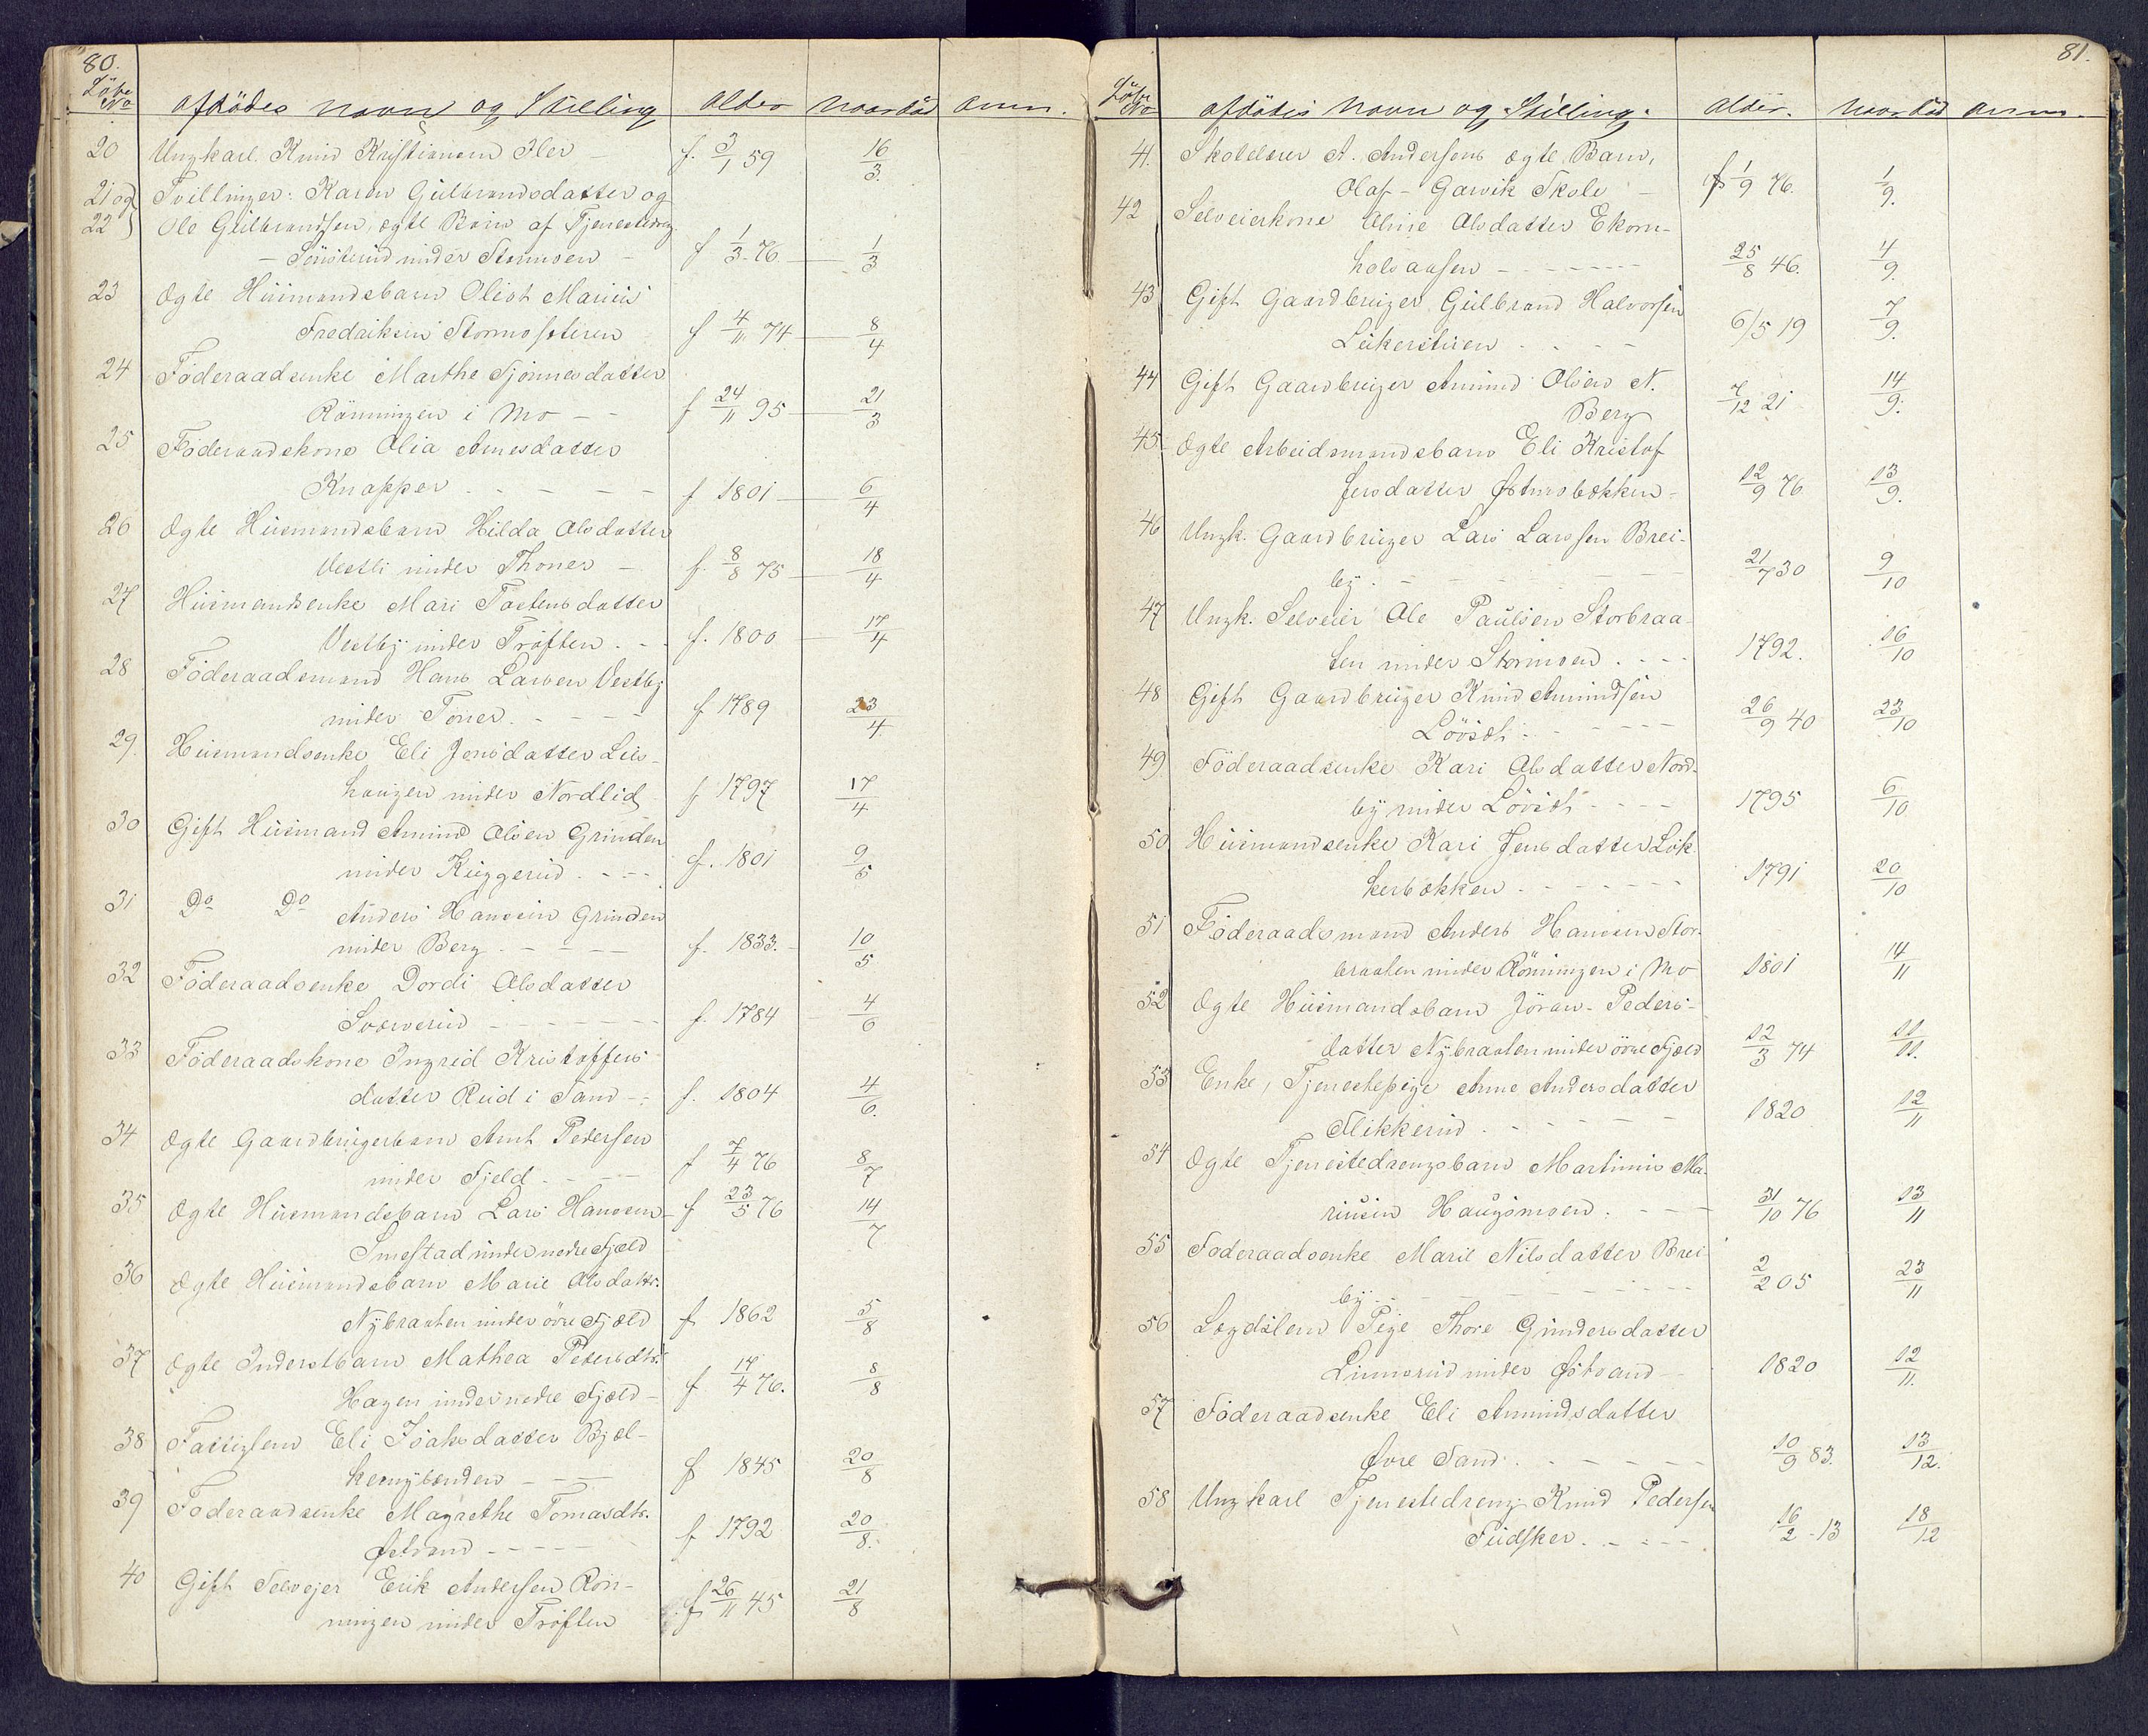 80.
Löbe No afdödes navn og Stilling alder naar död anm.
20 Ungkarl. Knud Kristiansen Iler f. 3/1 59 16/3.
21 og Tvillinger: Karen Gulbrandsdatter og
22 Ole Gulbrandsen, ægte Børn af Tjenestedrg
under Stormoen f 1/3 76 1/3
23 Ægte Husmandsbarn Oliot Marius
Fredriksen f 4/11 74 8/4
24 Föderaadsenke Marthe Tjönnesdatter
Rönningen i Mo f 24/11 95 21/3
25 Föderaadskone Olia Arnesdatter
Knapper f 1801 6/4
26 Ægte Husmandsbarn Hilda Olsdatter
Vestli under Thoner f. 8/8 75 18/4
27 Husmandsenke Mari Tostensdatter
Vestby under Tröften f. 1800 17/4
28 Föderaadsmand Hans Larsen Vestby
under Toner f 1789 23/4
29. Husmandsenke Eli Jensdatter Lus-
haugen under Nordlid f 1797 17/4
30 Gift Husmand Amund Olsen Grinden
under Kuggerud f. 1801 9/5
31 Do Do Anders Hansen Grinden
under Berg f. 1833. 10/5
32 Föderaadsenke Dordi Olsdatter
f. 1784 4/6
33 Föderaadskone Ingrid Kristoffers
datter Rud i Sand f. 1804 4/6.
34 Ægte Gaardbrugerbarn Arnt Pedersen
under Fjeld f 7/4 76 8/7
35 Ægte Husmandsbarn Lars Hansen f 23/5 76 14/7
Smestad under nedre Fjeld
36 Ægte Husmandsbarn Marie Olsdattr.
Nybraaten under övre Fjæld f 1862 5/8
37 Ægte Inderstbarn Mathea Petersdtr.
Hagen under nedre Fjæld f 14/4 76. 8/8
38 Fattiglem Eli Isaksdatter Bjæl-
f 1845 20/8
39 Föderaadsenke Magrethe Tomasdtr.
Østvand f 1792 20/8.
40 Gift Selvejer Erik Andersen Rön-
ningen under Tröften f 26/11 45 21/8
81.
Löbe No afdödes navn og Stilling. alder. naar död anm.
41. Skolelærer A. Andersens ægte Barn,
Olaf - Garvik Skole f 1/9 76. 1/9.
42 Selveierkone Olsdatter Ekorn-
holsaasen 25/8 46. 4/9.
43 Gift Gaardbruger Gulbrand Halvorsen
6/5 19 7/9.
44 Gift Gaardbruger Amund Olsen N.
Berg 7/12 21 14/9.
45 Ægte Arbeidsmandsbarn Eli Kristof
fersdatter 12/9 76 13/9.
46 Ungk. Gaardbruger Lars Larssen Brei-
by. 21/7 30 9/10
47 Ungk. Selveier Ole Paulsen Storbraa-
ten under Stormoen 1792. 16/10
48 Gift Gaardbruger Knud Amundsen
Lövset 26/9 40 23/10
49 Föderaadsenke Kari Olsdatter Nord-
by under Lövset 1795 6/10
50 Husmandsenke Kari Jensdatter Lök-
kerbækken 1791 20/10
51 Föderaadsmand Anders Hansen Stor-
braaten under Rönningen i Mo 1801 14/11
52 Ægte Husmandsbarn Jöran Peders-
datter Nybraaten under övre Fjæld 12/3 74 11/11.
53 Enke, Tjenestepige Anne Andersdatter
Flikkerud 1820 12/11
54 Ægte Tjenestedrengsbarn Martinus Ma-
riusen Haugsmoen. 31/10 76 13/11
55 Föderaadsenke Marie Nilsdatter Brei-
by 2/2 05 23/11
56 Lægdslem Pige Thore Gundersdatter
Linnerud under Østvand 1820 12/11.
57 Föderaadsenke Eli Amundsdatter
Øvre Sand 10/9 83. 13/12.
58 Ungkarl Tjenestedreng Knud Pedersen
Fudsker 16/2 - 13 18/12